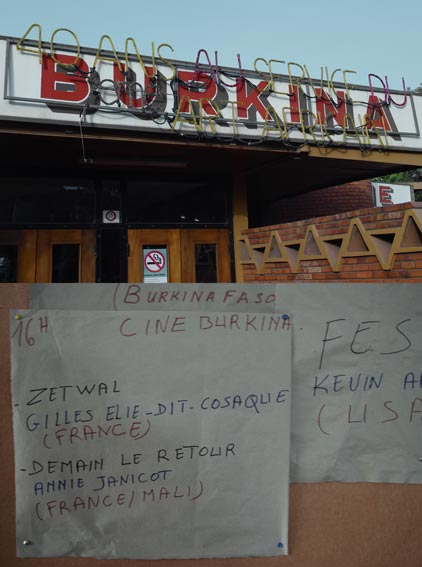 40 ANS AU SERVICE DU
BURKINA
E
(BURKINA FASO
16H CINE BURKINA.
- ZETWAL
GILLES ELIE-DIT-COSAQUE
(FRANCE)
- DEMAIN LE RETOUR
ANNIE JANICOT
(FRANCE/MALI)
FES
KEVIN
(USA